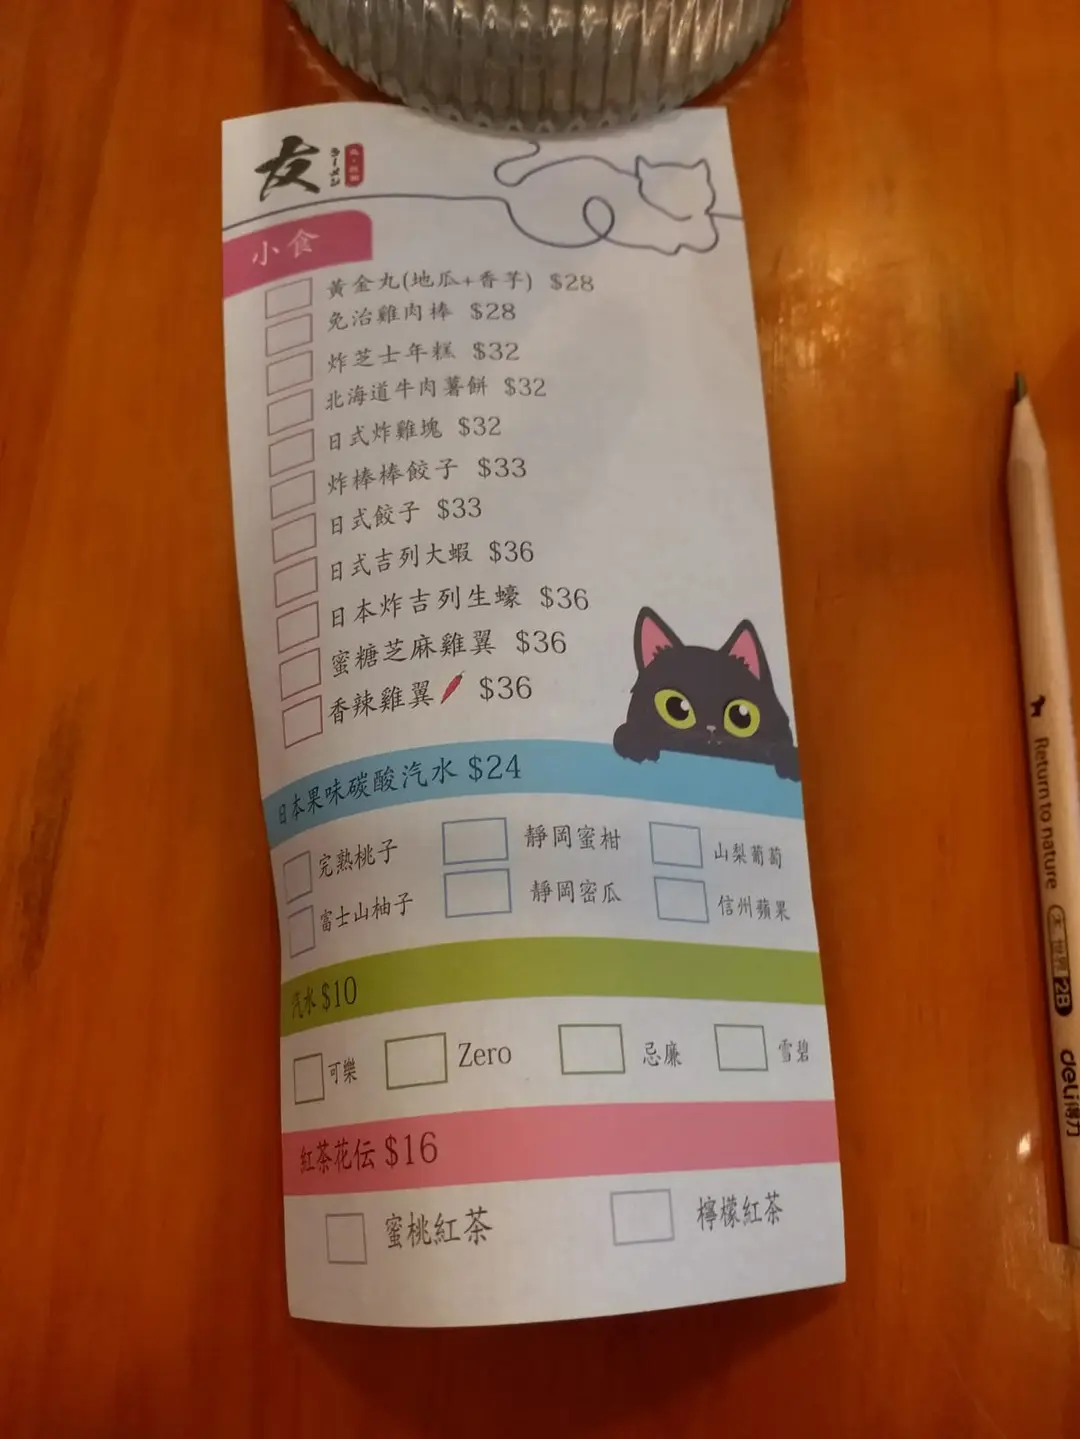 友
ラーメン
小食
黃金丸(地瓜+香芋) $28
免治雞肉棒 $28
炸芝士年糕 $32
北海道牛肉薯餅 $32
日式炸雞塊 $32
炸棒棒餃子 $33
日式餃子 $33
日式吉列大蝦 $36
日本炸吉列生蠔 $36
蜜糖芝麻雞翼 $36
香辣雞翼 $36
日本果味碳酸汽水 $24
完熟桃子 靜岡蜜柑 山梨葡萄
富士山柚子 靜岡密瓜 信州蘋果
汽水 $10
可樂 Zero 忌廉 雪碧
紅茶花伝 $16
蜜桃紅茶 檸檬紅茶
Return to nature 2B deli得力